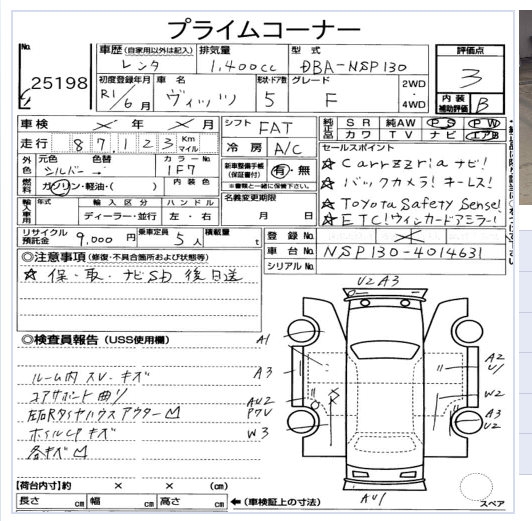 プライムコーナー
No.
25198
車歴 (自家用以外は記入)
レンタ
排気量
1,400cc
型式
DBA-NSP130
評価点
3
初度登録年月
R1/6月
車名
ヴィッツ
形状・ドア数
5
グレード
F
2WD
・
4WD
内装
補助評価
B
車検 年 月
走行 87,123 Km マイル
シフト FAT
冷房 A/C
純正品
SR 純AW PS PW
カワ TV ナビ エアB
外色 元色 色替
シルバー
カラーNo.
1F7
燃料 ガソリン・軽油・( )
内装色
新車整備手帳
(保証書付)
有・無
※書類と一緒に保管下さい。
セールスポイント
☆ Carrzzriaナビ!
☆ バックカメラ! キーレス!
☆ Toyota Safety Sense!
☆ ETC! ウィンカードアミラー!
輸入車用
年式 輸入区分 ハンドル
ディーラー・並行 左・右
名義変更期限
月 日
リサイクル預託金 9,000円
乗車定員 5人
積載量 t
登録No.
車台No. NSP130-4014631
シリアルNo.
◎注意事項 (修復・不具合箇所および状態等)
☆ 保・取・ナビSD 後日送
◎検査員報告 (USS使用欄)
ルーム内 スレ・キズ
コアサポート曲り
左右Rタイヤハウスアウター凹
ホイルCPキズ
各キズ凹
U2 A3
A1
A3
AU2
P7U
W3
A2
U1
W2
A3
U2
AU1
【荷台内寸】約 × × (cm)
長さ cm 幅 cm 高さ cm
←(車検証上の寸法)
スペア